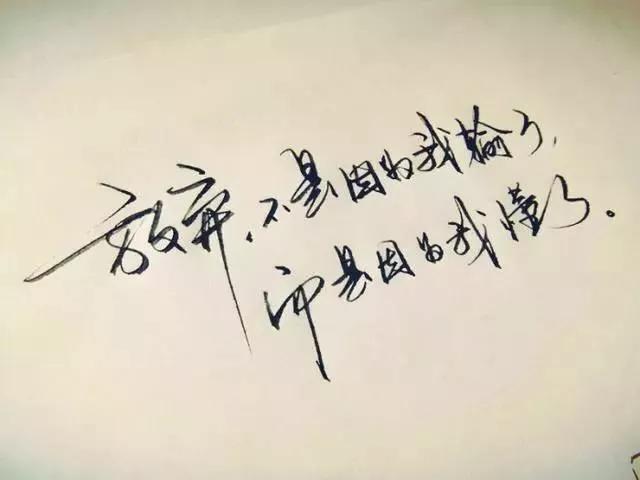 放弃,不是因为我输了,
而是因为我懂了。